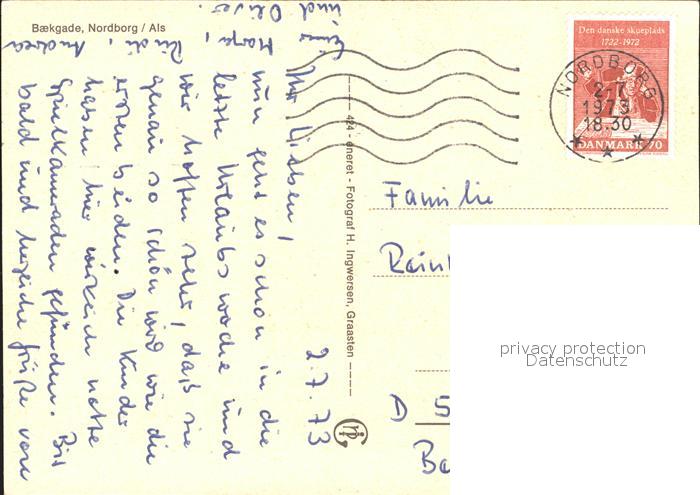 Bækgade, Nordborg / Als
2.7.73
Ihr Lieben!
nun geht es schon in die
letzte Urlaubswoche und
wir hoffen sehr, daß sie
genau so schön wird wie die
ersten beiden. Die Kinder
haben hier wirklich nette
Spielkameraden gefunden. Bis
bald und herzliche Grüße von
Andrea
und Oliver.
424 - eneret - Fotograf H. Ingwersen, Graasten
Den danske skueplads
1722-1972
DANMARK 70
NORDBORG
2-7
1973
18.30
Familie
D 5
Ba
privacy protection
Datenschutz